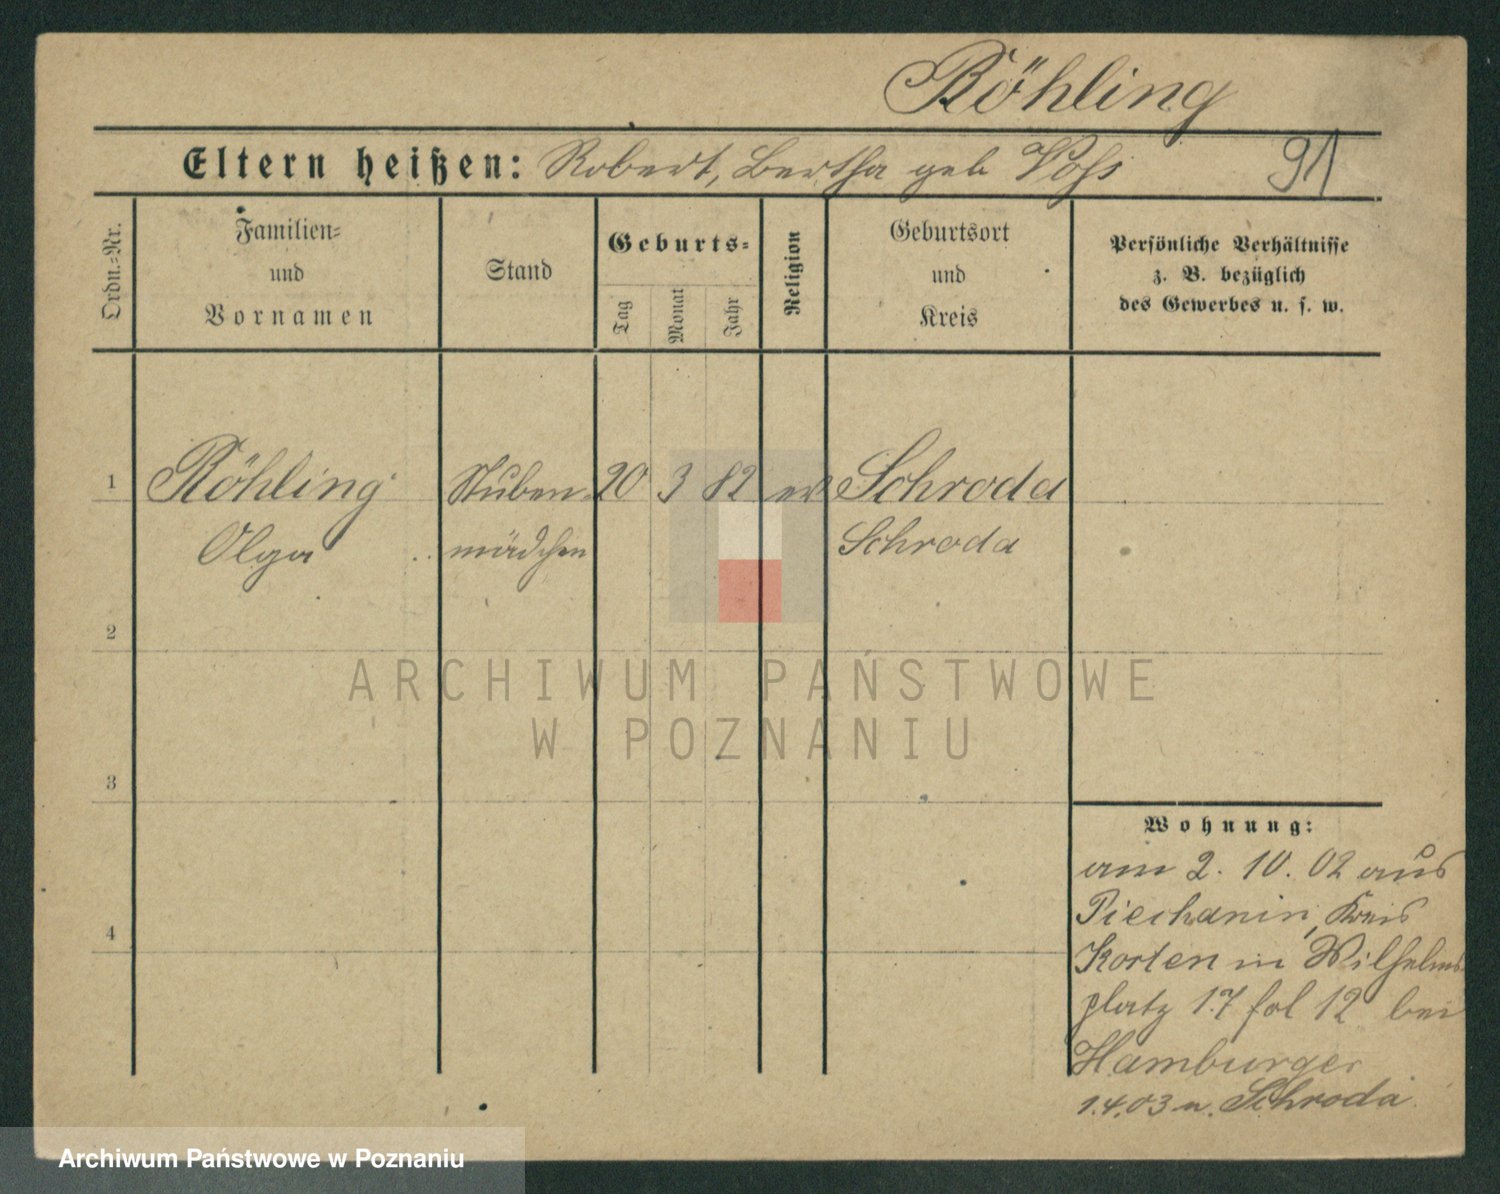 Röhling
Eltern heißen: Robert, Bertha geb Voß 91
Ordn.-Nr.
Familien-
und
Vornamen
Stand
Geburts-
Tag
Monat
Jahr
Religion
Geburtsort
und
Kreis
Persönliche Verhältnisse
z. B. bezüglich
des Gewerbes u. s. w.
1 Röhling Stuben- 20 3 82 ev Schroda
Olga mädchen Schroda
2
3
4
Wohnung:
am 2. 10. 02 aus
Piechanin, Kreis
Kosten in Wilhelms
platz 17 fol 12 bei
Hamburger
1.4.03 n. Schroda
ARCHIWUM PAŃSTWOWE
W POZNANIU
Archiwum Państwowe w Poznaniu